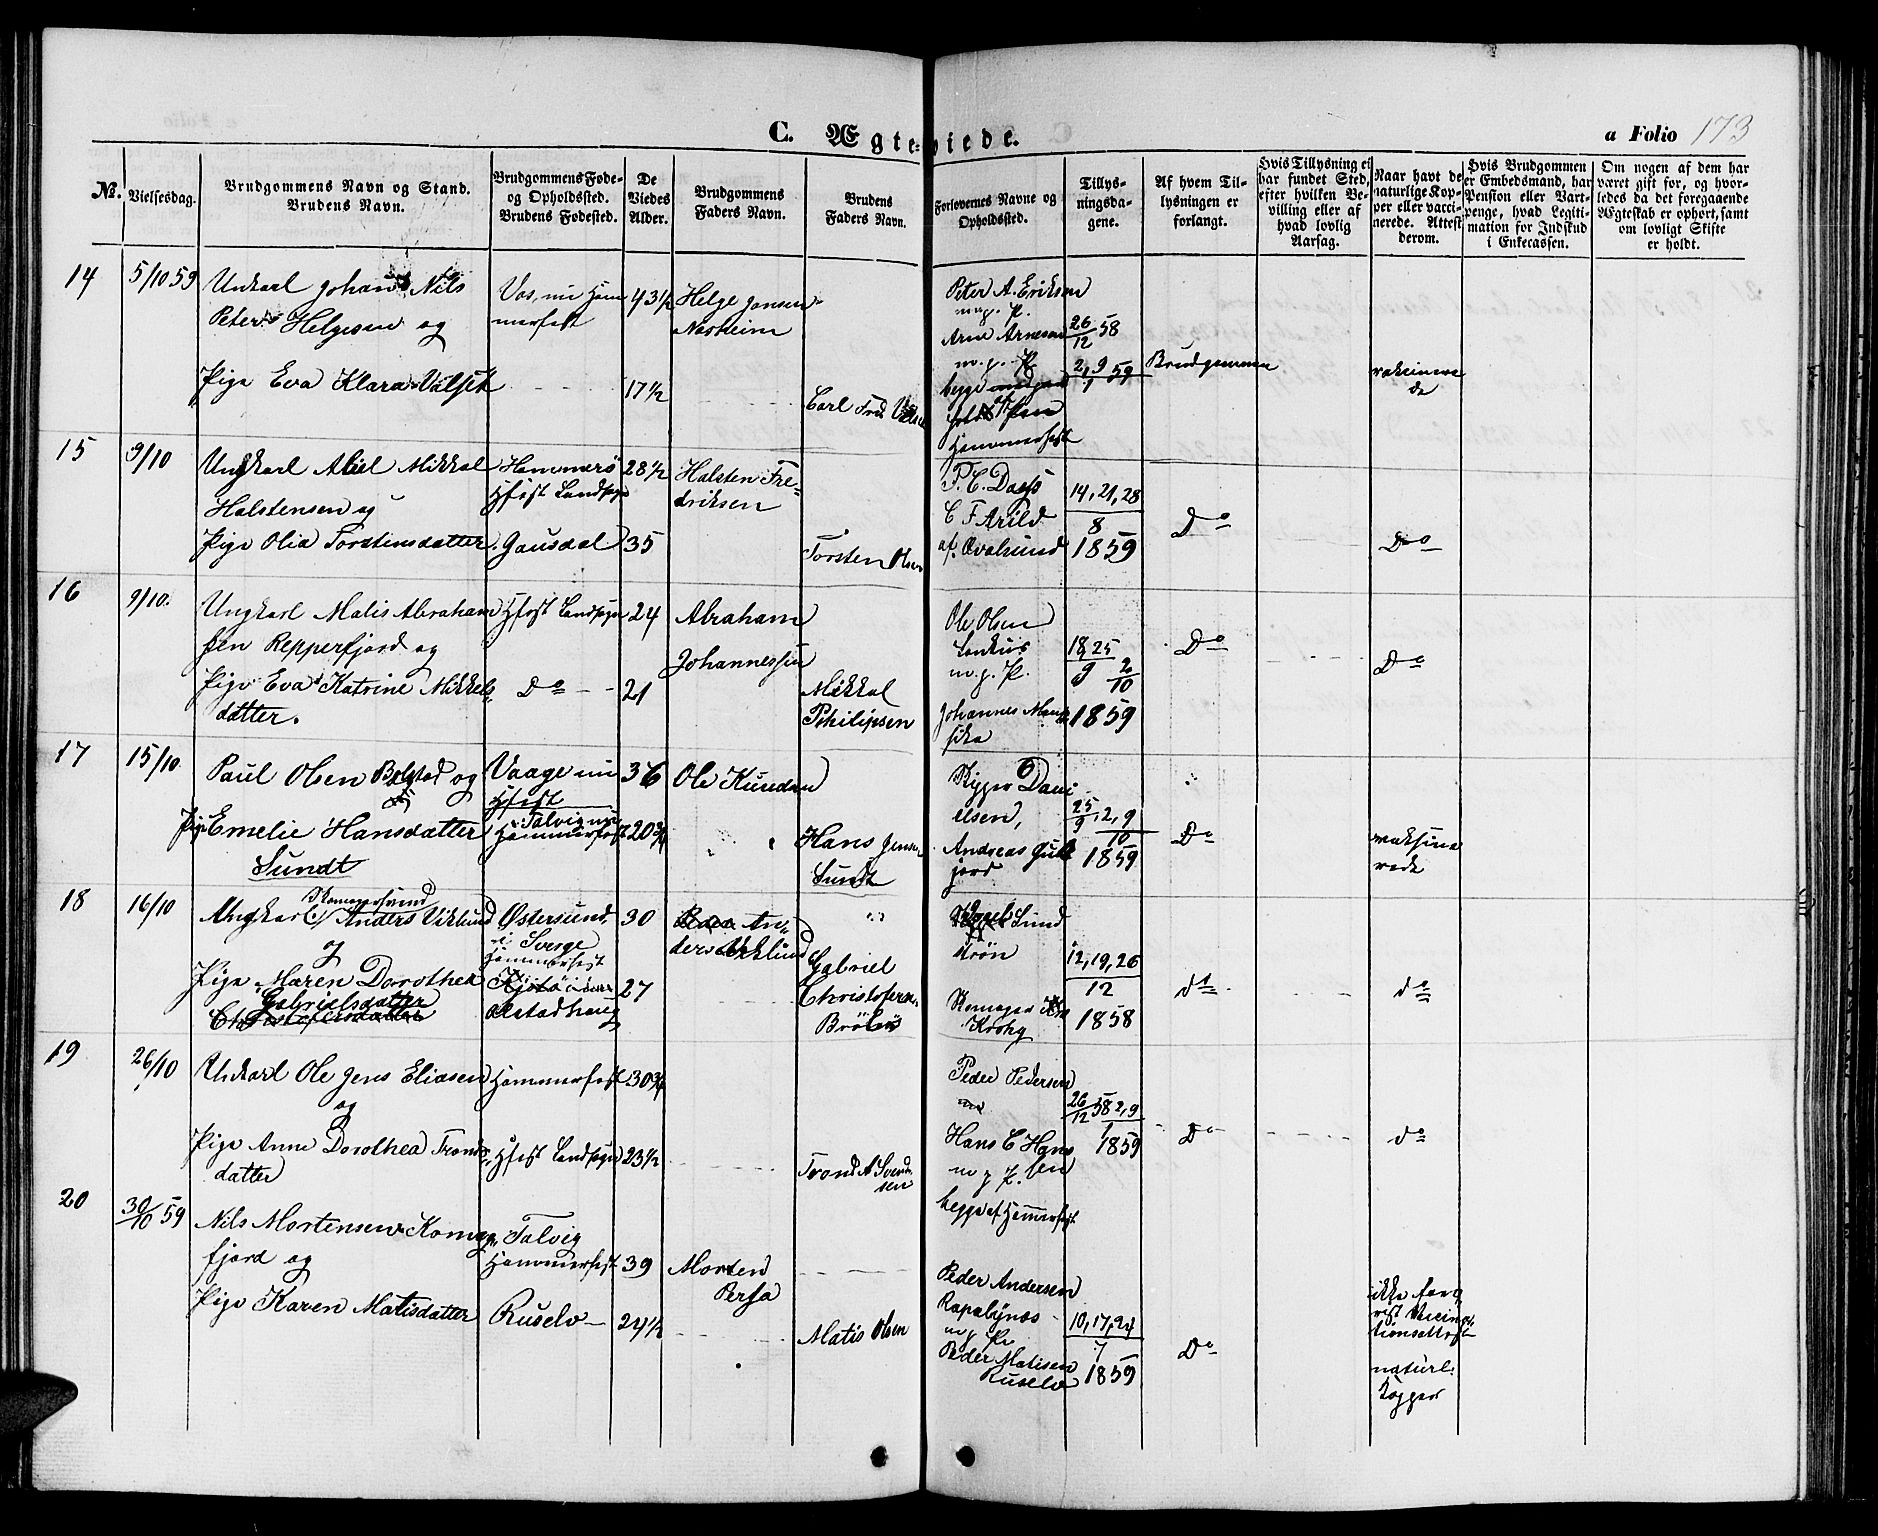 C. Ægteviede.
a Folio 173
No.
Vielsesdag.
Brudgommens Navn og Stand.
Brudens Navn.
Brudgommens Føde-
og Opholdssted.
Brudens Fødested.
De
Viedes
Alder.
Brudgommens
Faders Navn.
Brudens
Faders Navn.
Forlovernes Navne og
Opholdssted.
Tillys-
ningsda-
gene.
Af hvem Til-
lysningen er
forlangt.
Hvis Tillysning ei
har fundet Sted,
efter hvilken Be-
villing eller af
hvad lovlig
Aarsag.
Naar havt de
naturlige Kop-
per eller vacci-
nerede. Attest
derom.
Hvis Brudgommen
er Embedsmand, har
Pension eller Vart-
penge, hvad Legiti-
mation for Indskud
i Enkecassen.
Om nogen af dem har
været gift for, og hvor-
ledes da det foregaaende
Ægteskab er ophørt, samt
om lovligt Skifte
er holdt.
14
5/10 59
Unkarl Johan Nils
Peter Helgesen og
Pige Eva Klara
Vos, nu Ham
merfest
43 1/2
17 1/2
Helge Jonsen
Carl Fred
Peter A. Eriksen
Arne Arnesen
m. p. P.
begge
Hammerfest
26/12 58
2, 9/1 59
Brudgommen
vakcinere
de
15
9/10
Ungkarl Abel Mikkal
Halstensen og
Pige Olia Torstensdatter
Hammerø
Hfest Landsogn
Gausdal
28 1/2
35
Halsten Fre-
driksen
Torsten Olsen
P. C. Dass
C F Arild
af Qvalsund
14, 21, 28
8
1859
Do
Do
16
9/10.
Ungkarl Matis Abraham
sen Repperfjord og
Pige Eva Katrine Mikkels
datter.
Hfest Landsogn
Do
24
21
Abraham
Johannessen
Mikkal
Philipsen
Ole Olsen
m. p. P.
Johannes
18, 25
9 2/10
1859
Do
Do
17
15/10
Paul Olsen og
Pige Emelie Hansdatter
Sundt
Vaage nu
Hfest
Talvig nu
Hammerfest
36
20 3/4
Ole Knudsen
Hans Jensen
Sundt
Skipper Dani
elsen,
Andreas
jord
25/9, 2, 9
10
1859
Do
vaksine
rede
18
16/10
Ungkarl Anders Viklund
og
Pige Maren Dorothea
Gabrielsdatter
Christofersdatter
Østersund
i Sverge
Hammerfest
Alstadhaug
30
27
An-
ders Viklund
Gabriel
Christofersen
Lund
12, 19, 26
12
1858
do
do
19
26/10
Unkarl Ole Jens Eliasen
og
Pige Anne Dorothea Tronds
datter
Hammerfest
Hfest Landsogn
30 3/4
23 1/2
Trond A Svend
sen
Peder Pedersen
Hans C Hans
sen
m p P.
begge af Hammerfest
26/12 58 2, 9
1859
Do
do
20
30/10 59
Nils Mortensen Komag
fjord og
Pige Karen Matisdatter
Talvig
Hammerfest
Ruselv
39
24 1/2
Morten
Persa
Matis Olsen
Peder Andersen
m p P.
Peder Matisen
Ruselv
10, 17, 24
7
1859
Do
ikke
naturl.
Kopper